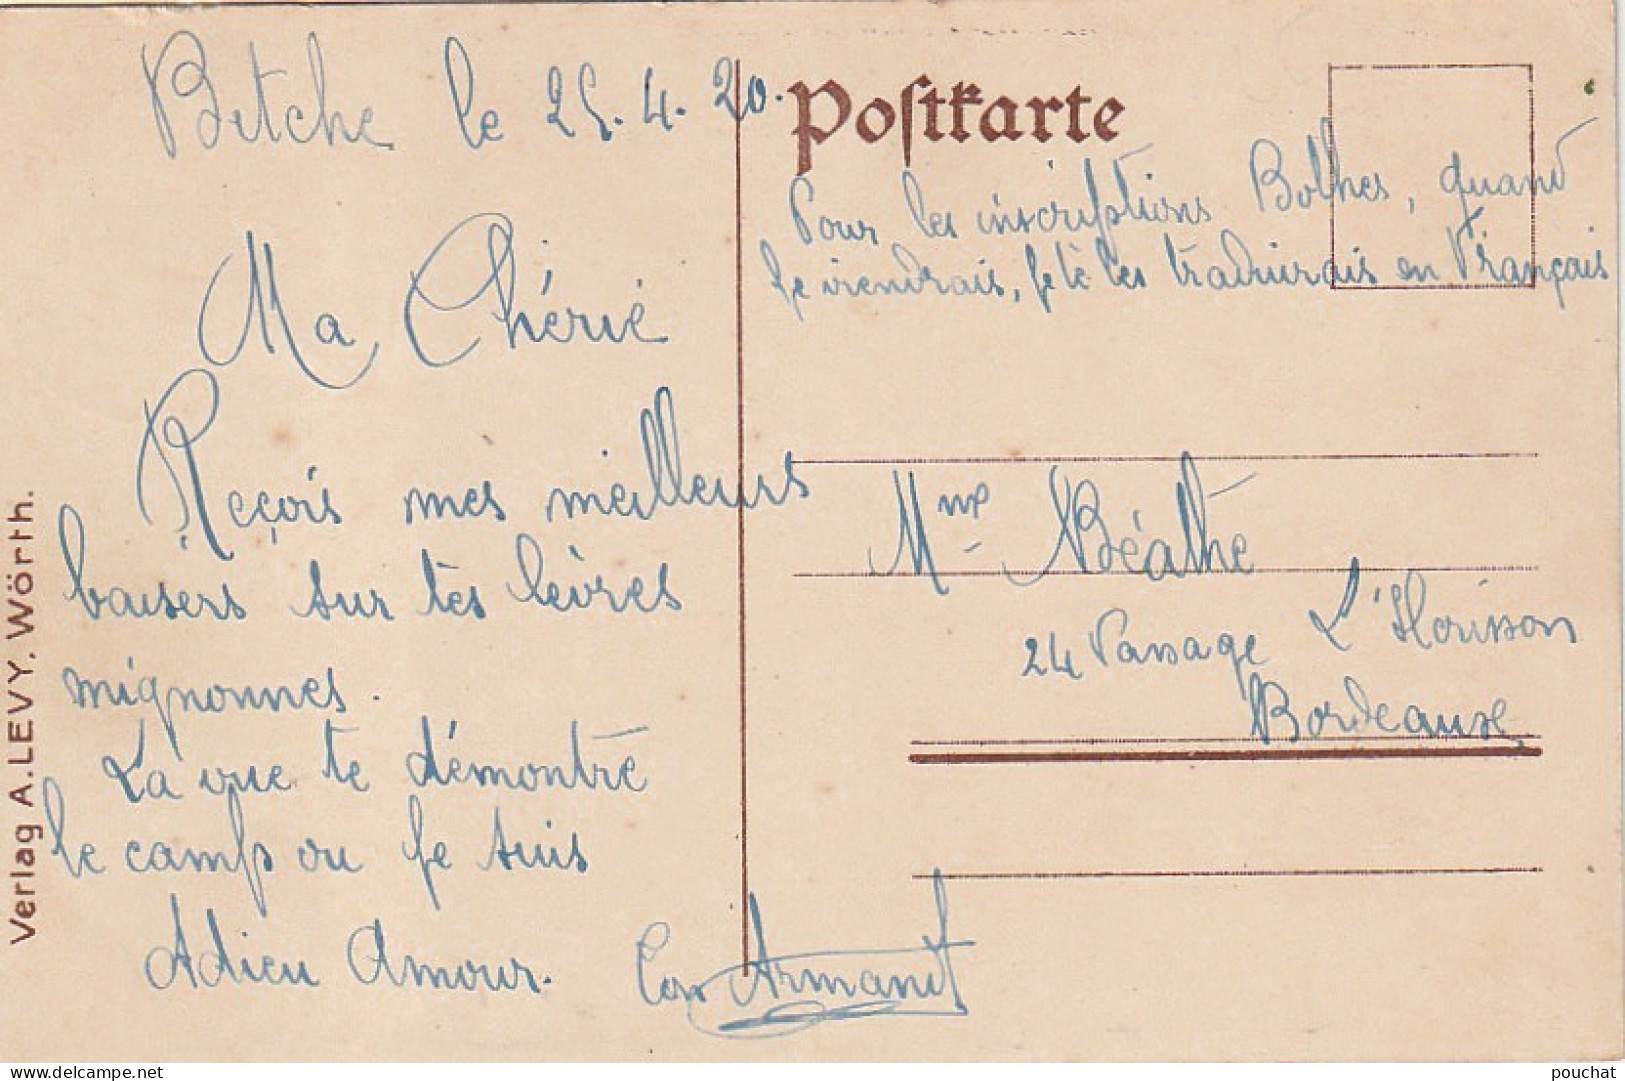 Bitche le 25.4.20.
Ma Chérie
Reçois mes meilleurs
baisers sur tes lèvres
mignonnes.
La vue te démontre
le camp ou je suis
Adieu Amour.
Armand
Verlag A. LEVY, Wörth.
Postkarte
Pour les inscriptions Bolhes, quand
je viendrais, je te les traduirais en Français
Mme Béathe
24 Passage L'Hourisson
Bordeaux
pouchat